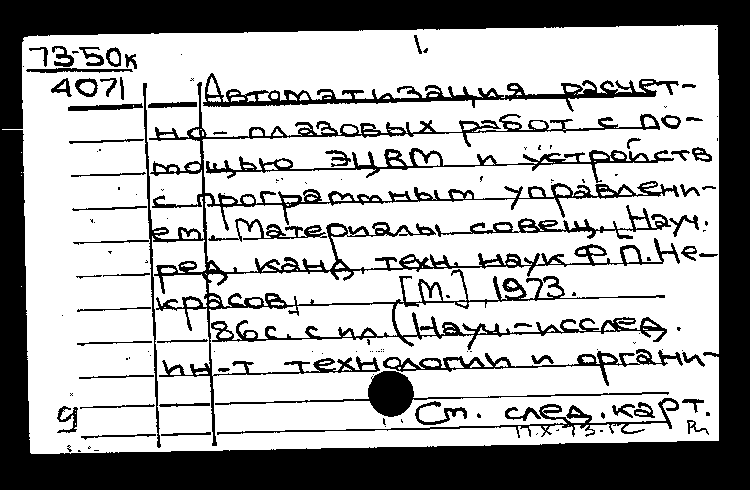 1.
73-50к
4071
Автоматизация расчет-
но-плазовых работ с по-
мощью ЭЦВМ и устройств
с программным управлени-
ем. Материалы совещ. Науч.
ред. канд. техн. наук Ф.П.Не-
красов. [М.] 1973.
86с. с ил. (Науч.-исслед.
ин-т технологии и органи-
9
См. след. карт.